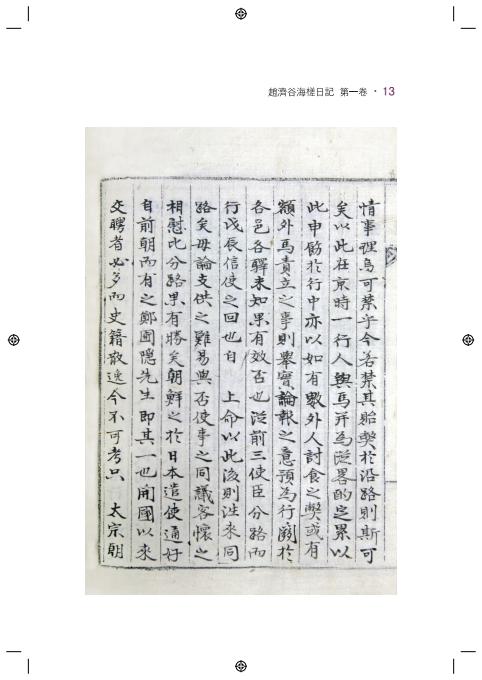 趙濟谷海槎日記 第一卷 · 13
情事理烏可禁乎今若禁其貽弊於沿路則斯可
矣以此在京時一行人與馬并爲從畧酌定累以
此申飭於行中亦以如有數外人討食之弊或有
額外馬責立之事則擧實論報之意預爲行關於
各邑各驛未知果有效否也從前三使臣分路而
行戊辰信使之回也自 上命以此後則往來同
路矣毋論支供之難易與否使事之同議客懷之
相慰比分路果有勝矣朝鮮之於日本遣使通好
自前朝而有之鄭圃隱先生卽其一也開國以來
交聘者必多而史籍散逸今不可考只 太宗朝